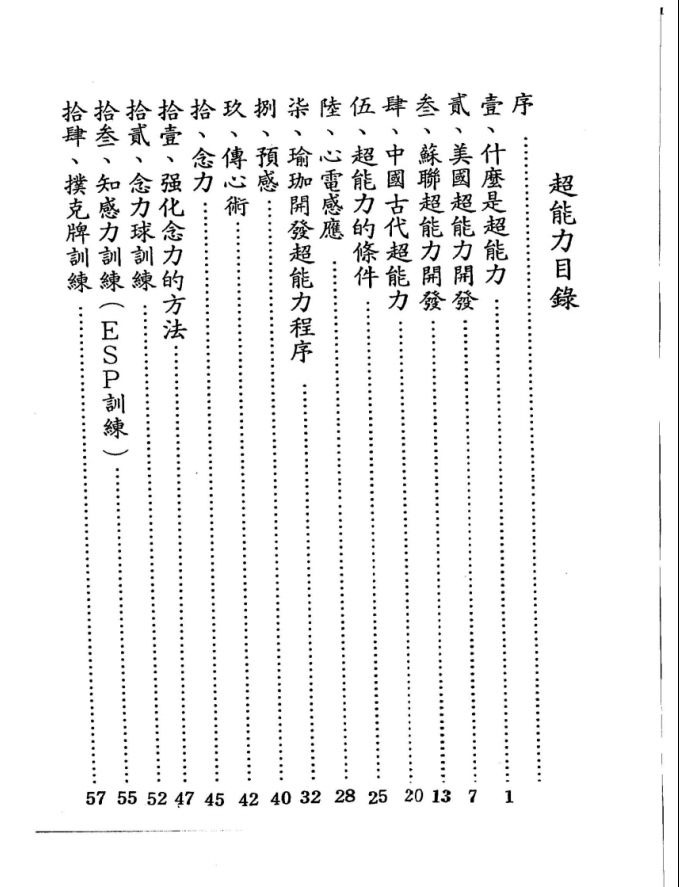 超能力目錄
序……………………………………
壹、什麼是超能力……………………………………1
貳、美國超能力開發……………………………………7
叁、蘇聯超能力開發……………………………………13
肆、中國古代超能力……………………………………20
伍、超能力的條件……………………………………25
陸、心電感應……………………………………28
柒、瑜珈開發超能力程序……………………………………32
捌、預感……………………………………40
玖、傳心術……………………………………42
拾、念力……………………………………45
拾壹、强化念力的方法……………………………………47
拾貳、念力球訓練……………………………………52
拾叁、知感力訓練（ESP訓練）……………………………………55
拾肆、撲克牌訓練……………………………………57